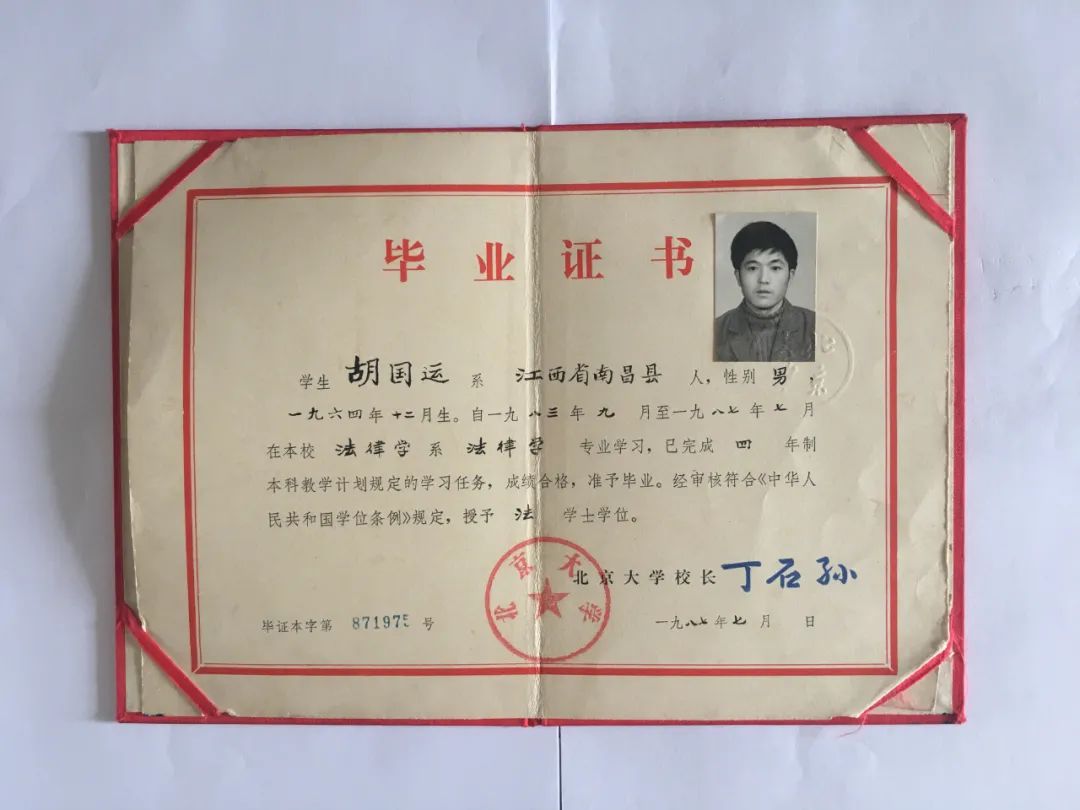 毕业证书
学生 胡国运 系 江西省南昌县 人，性别 男，
一九六四年十二月生。自一九八三年九月至一九八七年七月
在本校 法律学 系 法律学 专业学习，已完成 四 年制
本科教学计划规定的学习任务，成绩合格，准予毕业。经审核符合《中华人
民共和国学位条例》规定，授予 法 学士学位。
北京大学
北京大学校长 丁石孙
毕证本字第 871975 号
一九八七年七月 日